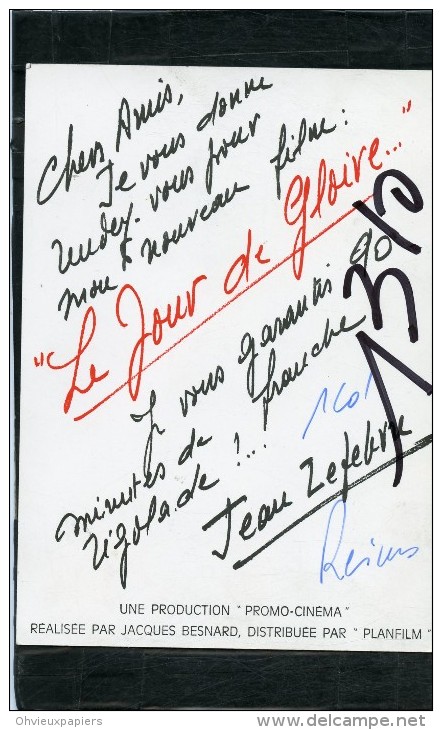 Chers Amis,
Je vous donne
rendez-vous pour
mon nouveau film :
"Le Jour de Gloire..."
Je vous garantis 90
minutes de franche
rigolade !...
Jean Lefebvre
1310
Reims
UNE PRODUCTION " PROMO-CINÉMA "
RÉALISÉE PAR JACQUES BESNARD, DISTRIBUÉE PAR " PLANFILM "
Ohvieuxpapiers
delcampe.net